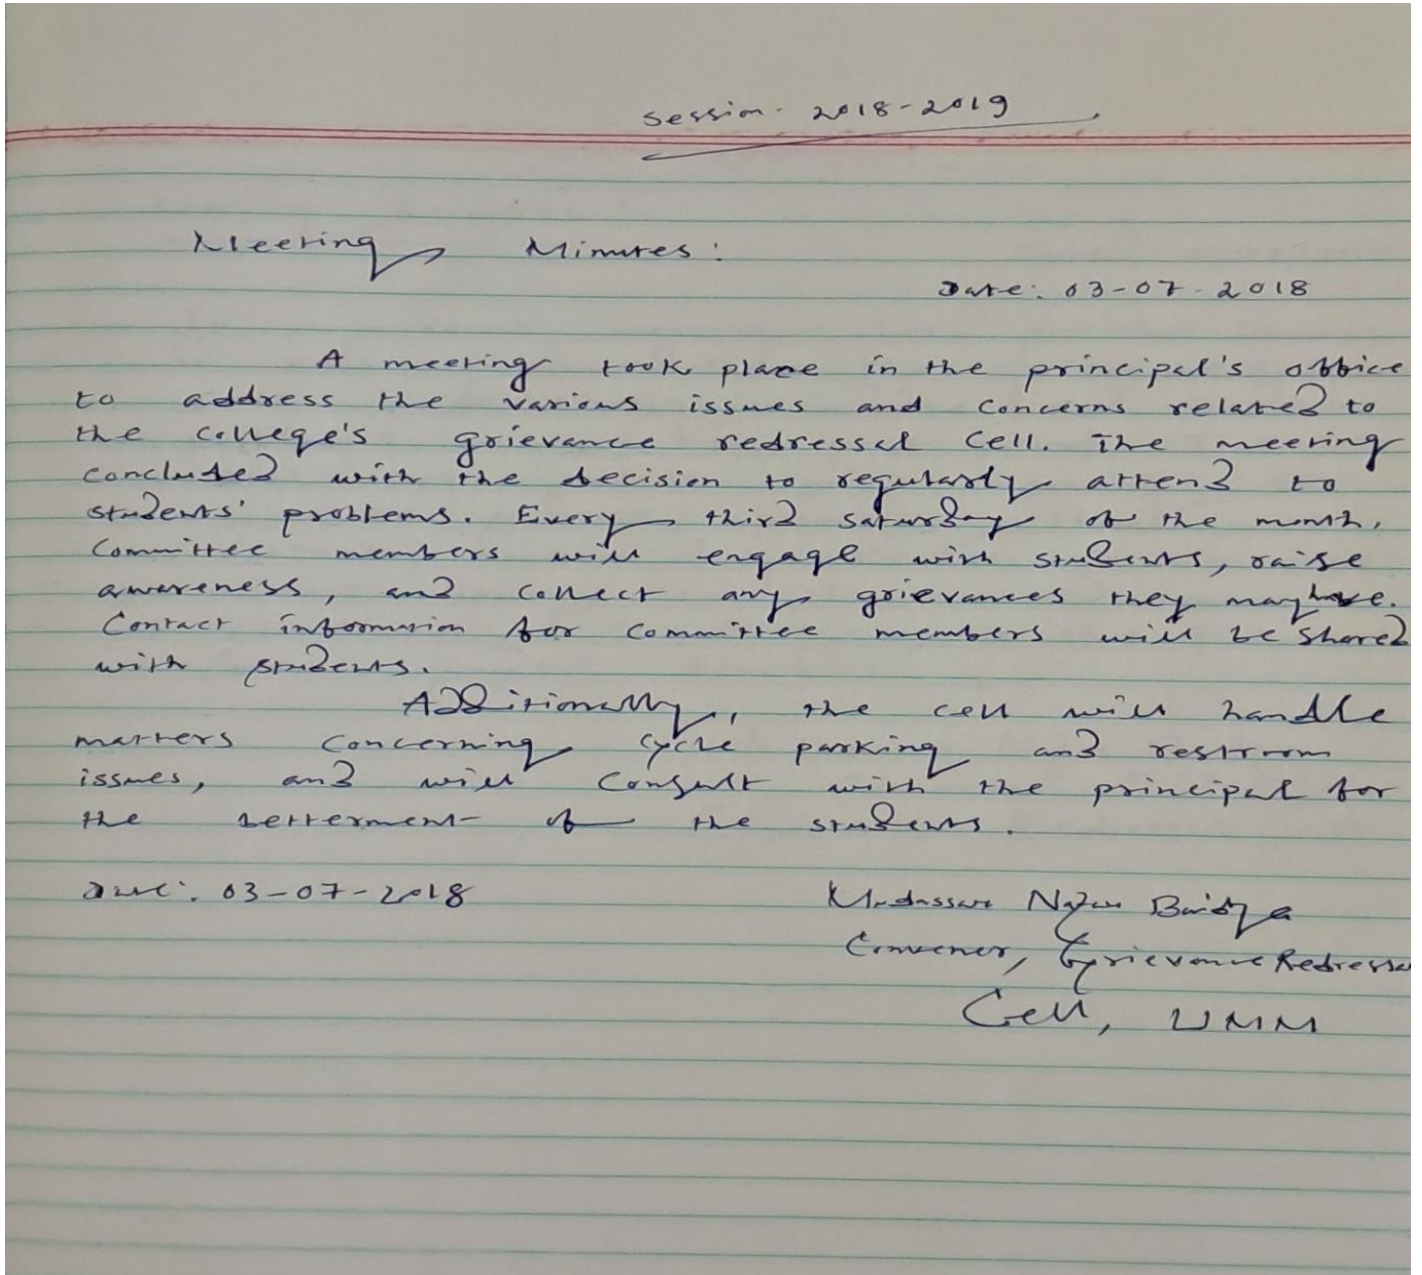 Session - 2018-2019
Meeting Minutes:
Date: 03-07-2018
A meeting took place in the principal's office
to address the various issues and concerns related to
the college's grievance redressal cell. The meeting
concluded with the decision to regularly attend to
students' problems. Every third saturday of the month,
Committee members will engage with students, raise
awareness, and collect any grievances they may have.
Contact information for committee members will be shared
with students.
Additionally, the cell will handle
matters concerning cycle parking and restroom
issues, and will consult with the principal for
the betterment of the students.
Date: 03-07-2018
Mudassar Nazar Baidya
Convenor, Grievance Redressa
Cell, UMM